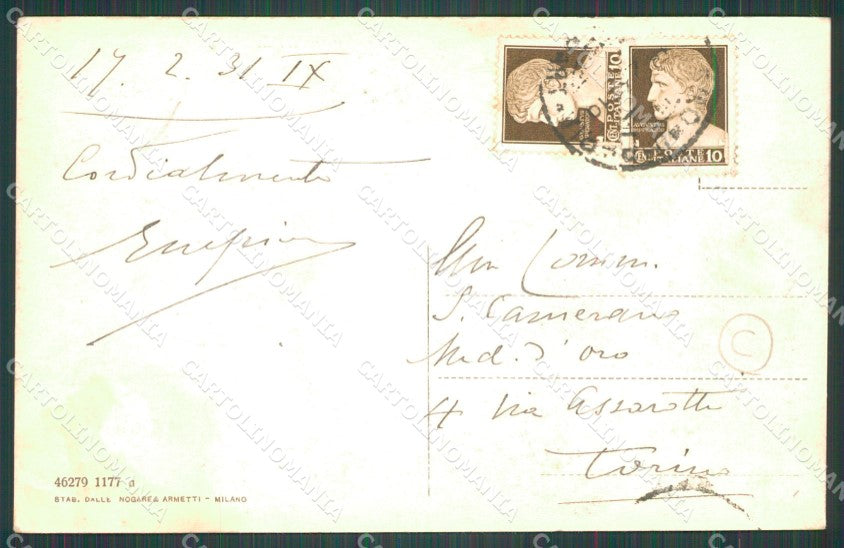 17. 2. 31 IX
Cordialmente
POSTE
ITALIANE 10
POSTE
ITALIANE 10
Comm.
S. Camerano
Med. d'oro
4 via Assarotti
Torino
C
46279 1177 a
STAB. DALLE NOGARE & ARMETTI - MILANO
CARTOLINOMANIA